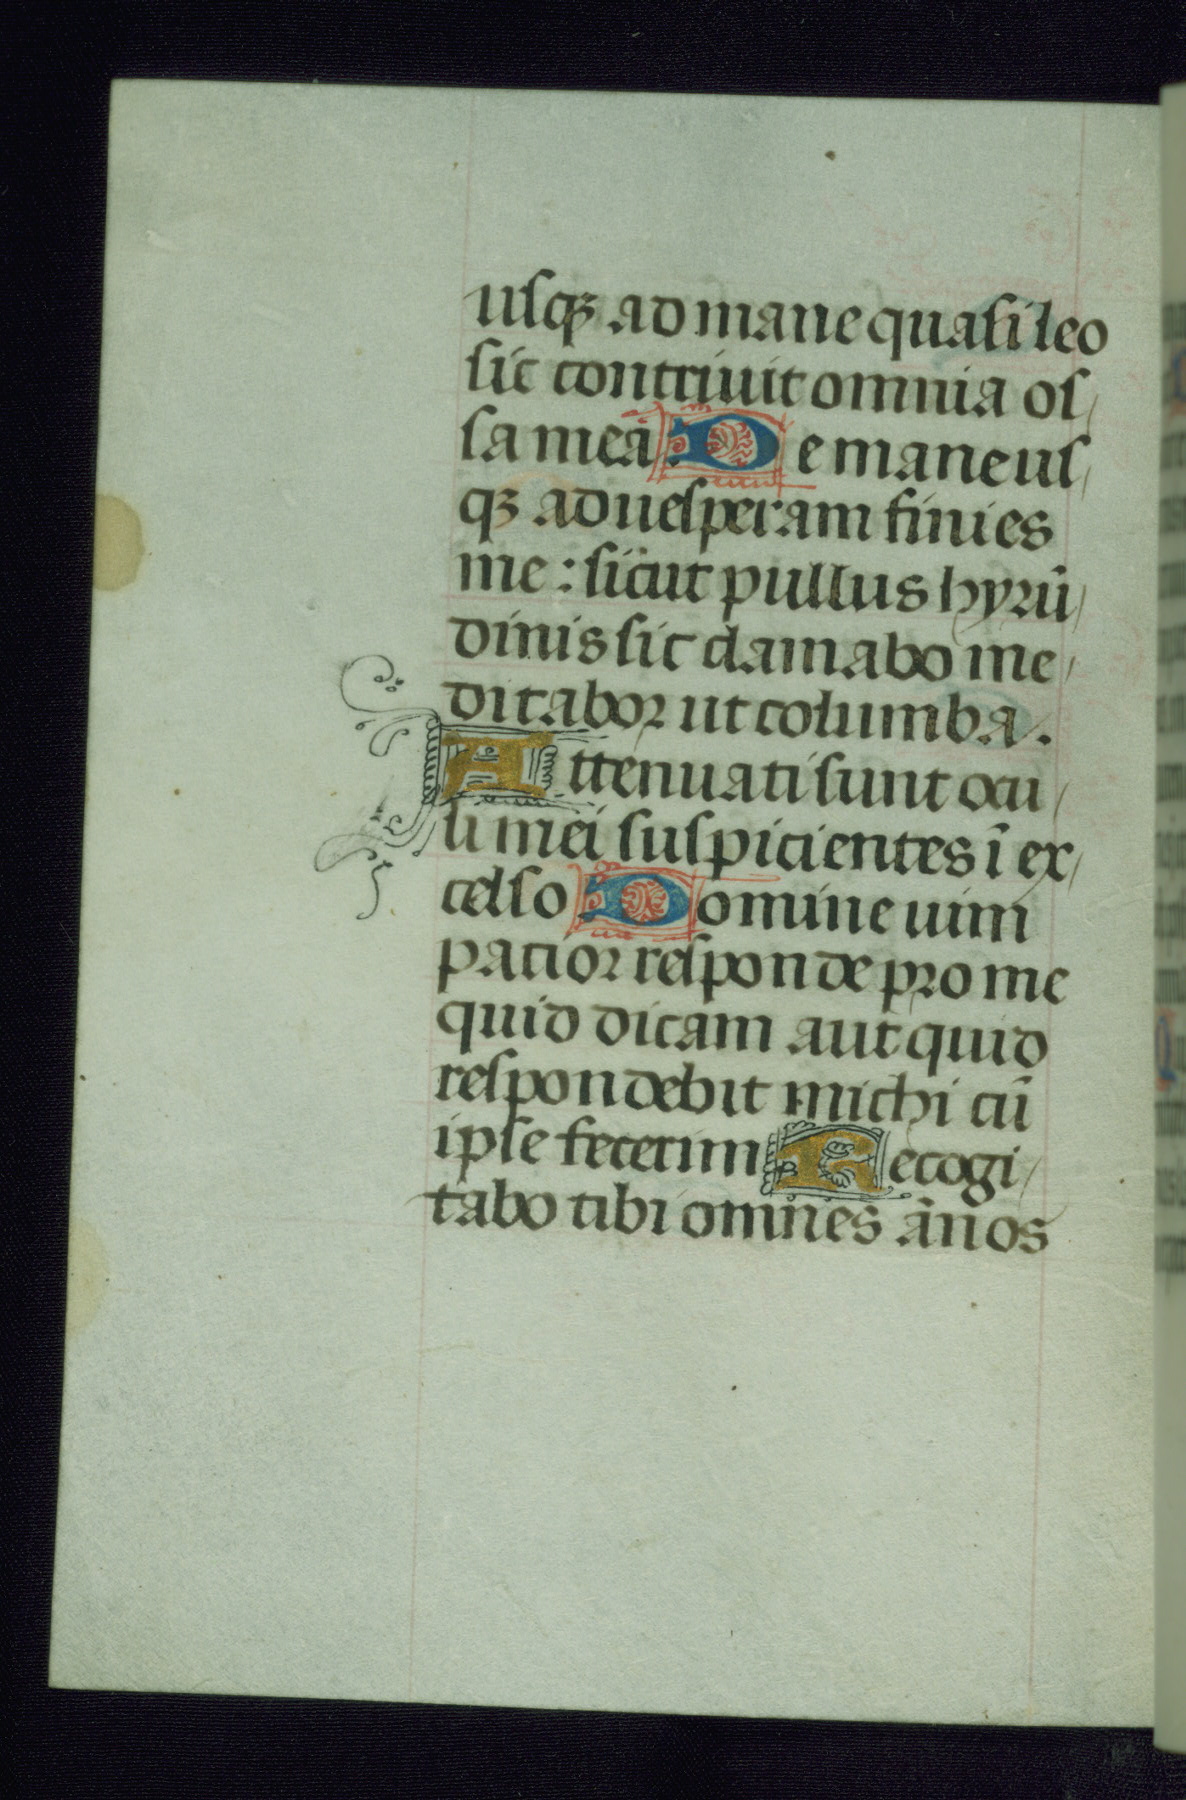 usqꝫ ad mane quasi leo
sic contriuit omnia os/
sa mea. De mane us/
qꝫ ad uesperam finies
me : sicut pullus hyrū/
dinis sic clamabo me/
ditabor ut columba.
Attenuati sunt ocu/
li mei suspicientes ī ex/
celso Domine uim
patior responde pro me
quid dicam aut quid
respondebit michi cū
ipse fecerim Recogi/
tabo tibi omnes ānos